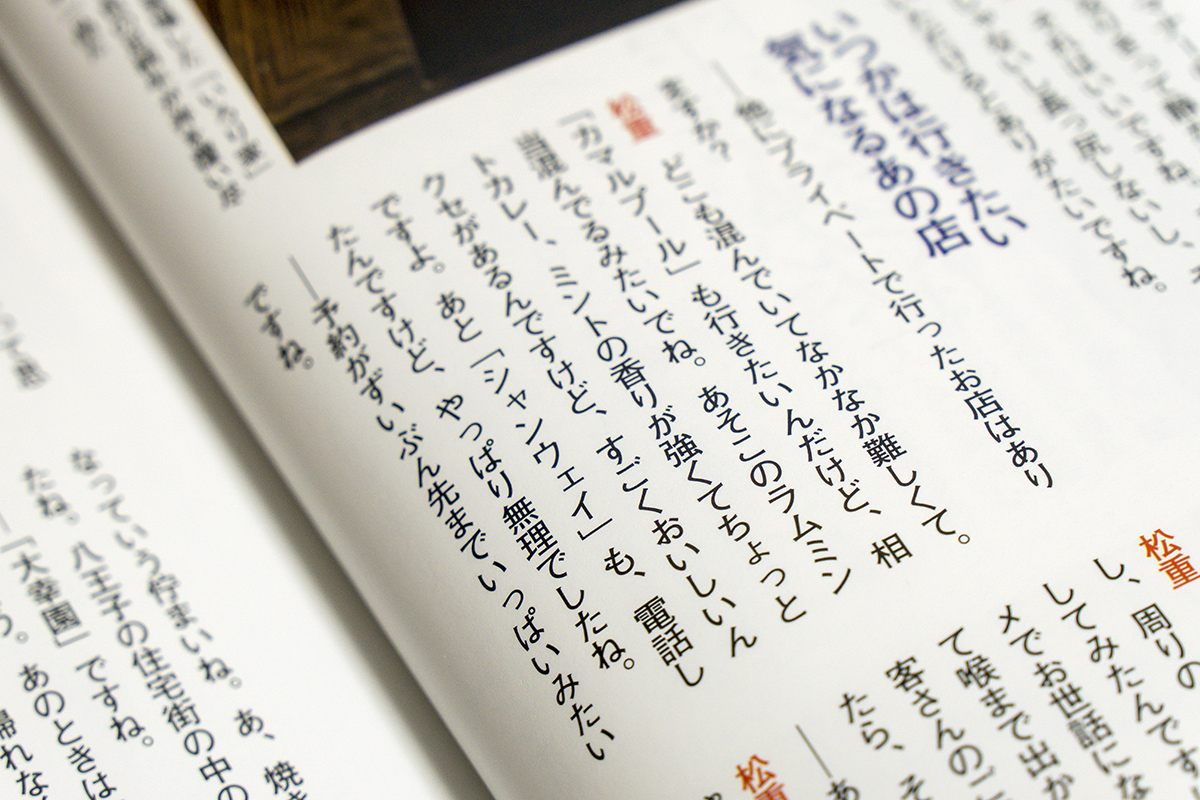 それはいいですね。
ゃないし長っ尻しないし、
とありがたいですね。
いつかは行きたい
氣になるあの店
――他にプライベートで行ったお店はあり
ますか？
松重 どこも混んでいてなかなか難しくて。
「カマルプール」も行きたいんだけど、相
当混んでるみたいでね。あそこのラムミン
トカレー、ミントの香りが強くてちょっと
クセがあるんですけど、すごくおいしいん
ですよ。あと「シャンウェイ」も、電話し
たんですけど、やっぱり無理でしたね。
――予約がずいぶん先までいっぱいみたい
ですね。
松重
し、周りの
してみたんです
メでお世話にな
て喉まで出か
客さんのご
たら、そ
――あ
松重
「いろり家」
って思
なっていう佇まいね。あ、焼き
たね。八王子の住宅街の中の
――「大幸園」ですね。
う。あのときは
帰れな